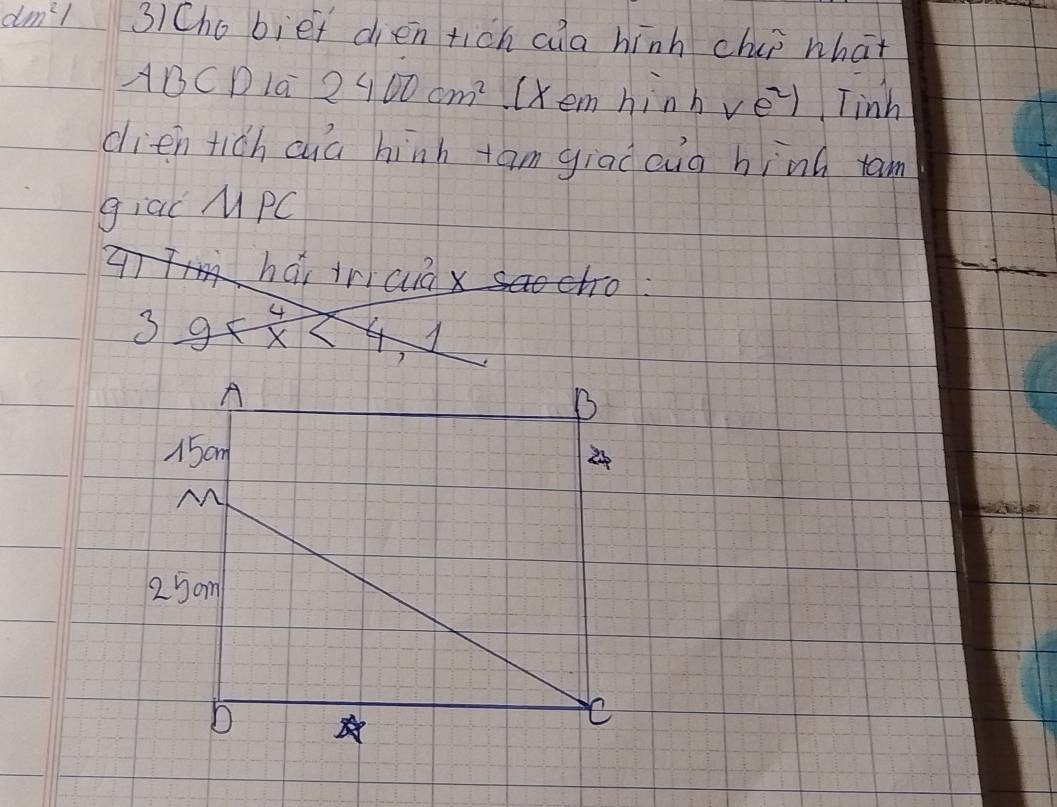 dm²)
3) Cho biết diện tích của hình chữ nhật
ABCD là 2400 cm² (Xem hình vẽ). Tính
diện tích của hình tam giác của hình tam
giác MPC
4) Tìm hai trị của x sao cho:
3 9 < 4/x < 4,1
A B
15cm
M
25cm
D C